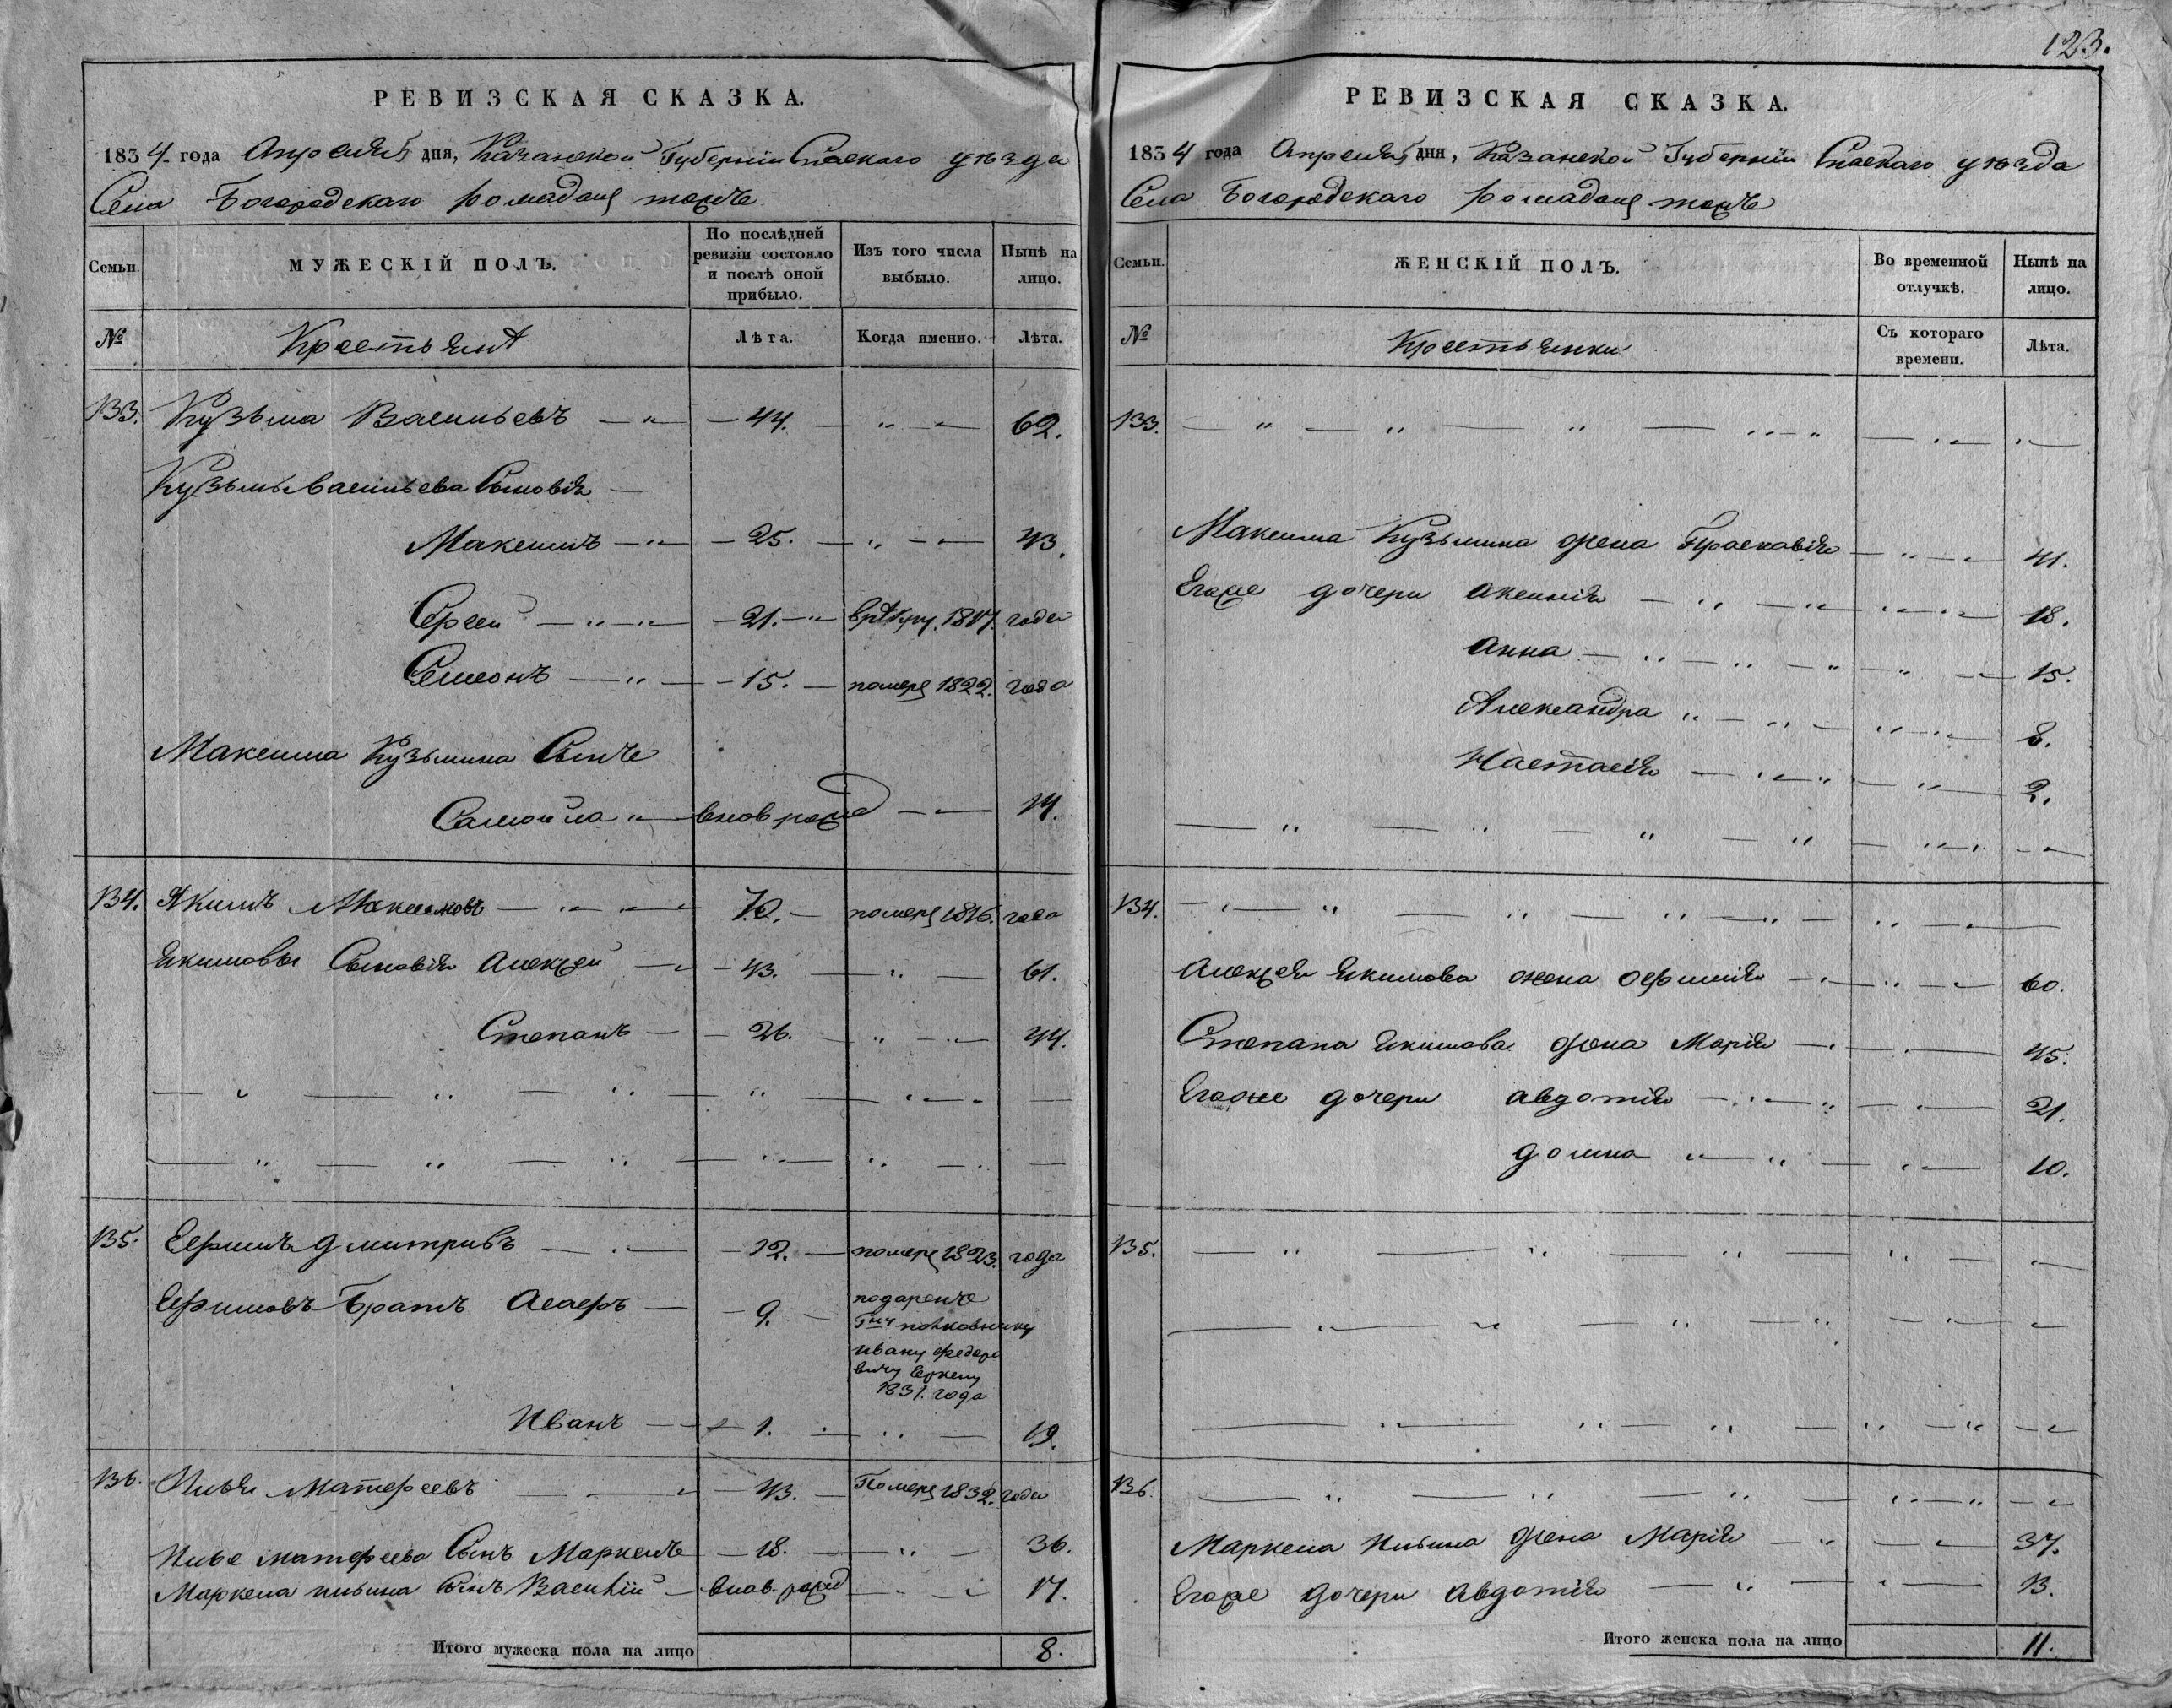 РЕВИЗСКАЯ СКАЗКА.
1834. года Апреля дня, Казанской Губернiи Спаскаго уѣзда
Села Богородскаго Ромадан тожъ
Семьи.
МУЖЕСКІЙ ПОЛЪ.
По послѣдней ревизіи состояло и послѣ оной прибыло.
Изъ того числа выбыло.
Нынѣ на лицо.
№
Крестьянѣ
Лѣта.
Когда именно.
Лѣта.
133. Кузьма Васильевъ — 44. — 62.
Кузьмы Васильева Сыновія
Максимъ — 25. — 43.
Сергей — 21. — врекру. 1817. года
Семонъ — 15. — померъ 1822. года
Максима Кузьмина Сынъ
Самойла — внов рожд — 14.
134. Якимъ Максимовъ — 70. — померъ 1816. года
Якимовы Сыновія Алексей — 43. — 61.
Степанъ — 26. — 44.
135. Ефимъ Дмитривъ — 12. — померъ 1823. года
Ефимовъ Братъ Асафъ — 9. —
подаренъ
Гну полковнику
Ивану Федоро
вичу
1831. года
Иванъ — 1. — 19.
136. Илья Матфеевъ — 43. — Померъ 1832. года
Илье Матфеева Сынъ Маркелъ — 18. — 36.
Маркела Ильина Сынъ Василій — Внов. рожд — 17.
Итого мужеска пола на лицо 8.
123.
РЕВИЗСКАЯ СКАЗКА.
1834 года Апреля дня, Казанской Губерніи Спаскаго уѣзда
Села Богородскаго Ромадан тожъ
Семьи.
ЖЕНСКІЙ ПОЛЪ.
Во временной отлучкѣ.
Нынѣ на лицо.
№
Крестьянки
Съ котораго времени.
Лѣта.
133.
Максима Кузьмина жена Прасковія — 41.
Егоже дочери Аксинія — 18.
Анна — 15.
Александра — 8.
Настасія — 2.
134.
Алексея Якимова жена Офимія — 60.
Степана Якимова жена Марія — 45.
Егоже дочери Авдотія — 21.
Домна — 10.
135.
136.
Маркела Ильина жена Марія — 37.
Егоже дочери Авдотія — 13.
Итого женска пола на лицо 11.